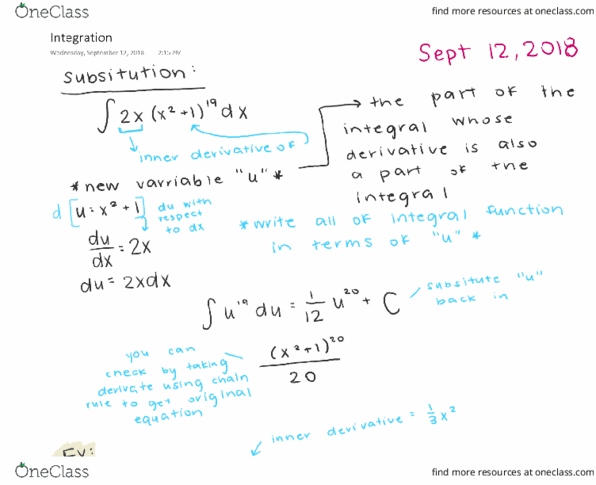 OneClass
find more resources at oneclass.com
Integration
Wednesday, September 12, 2018 2:15 PM
Sept 12, 2018
Subsitution:
∫ 2x (x² + 1)¹⁹ dx
inner derivative of
→ the part of the
integral whose
derivative is also
a part of the
integral
* new varriable "u" *
d [u = x² + 1]
du with
respect
to dx
* write all of integral function
in terms of "u" *
du/dx = 2x
du = 2xdx
∫ u¹⁹ du = 1/12 u²⁰ + C
subsitute "u"
back in
(x² + 1)²⁰
20
you can
check by taking
derivate using chain
rule to get original
equation
inner derivative = 1/3 x²
Ex:
OneClass
find more resources at oneclass.com